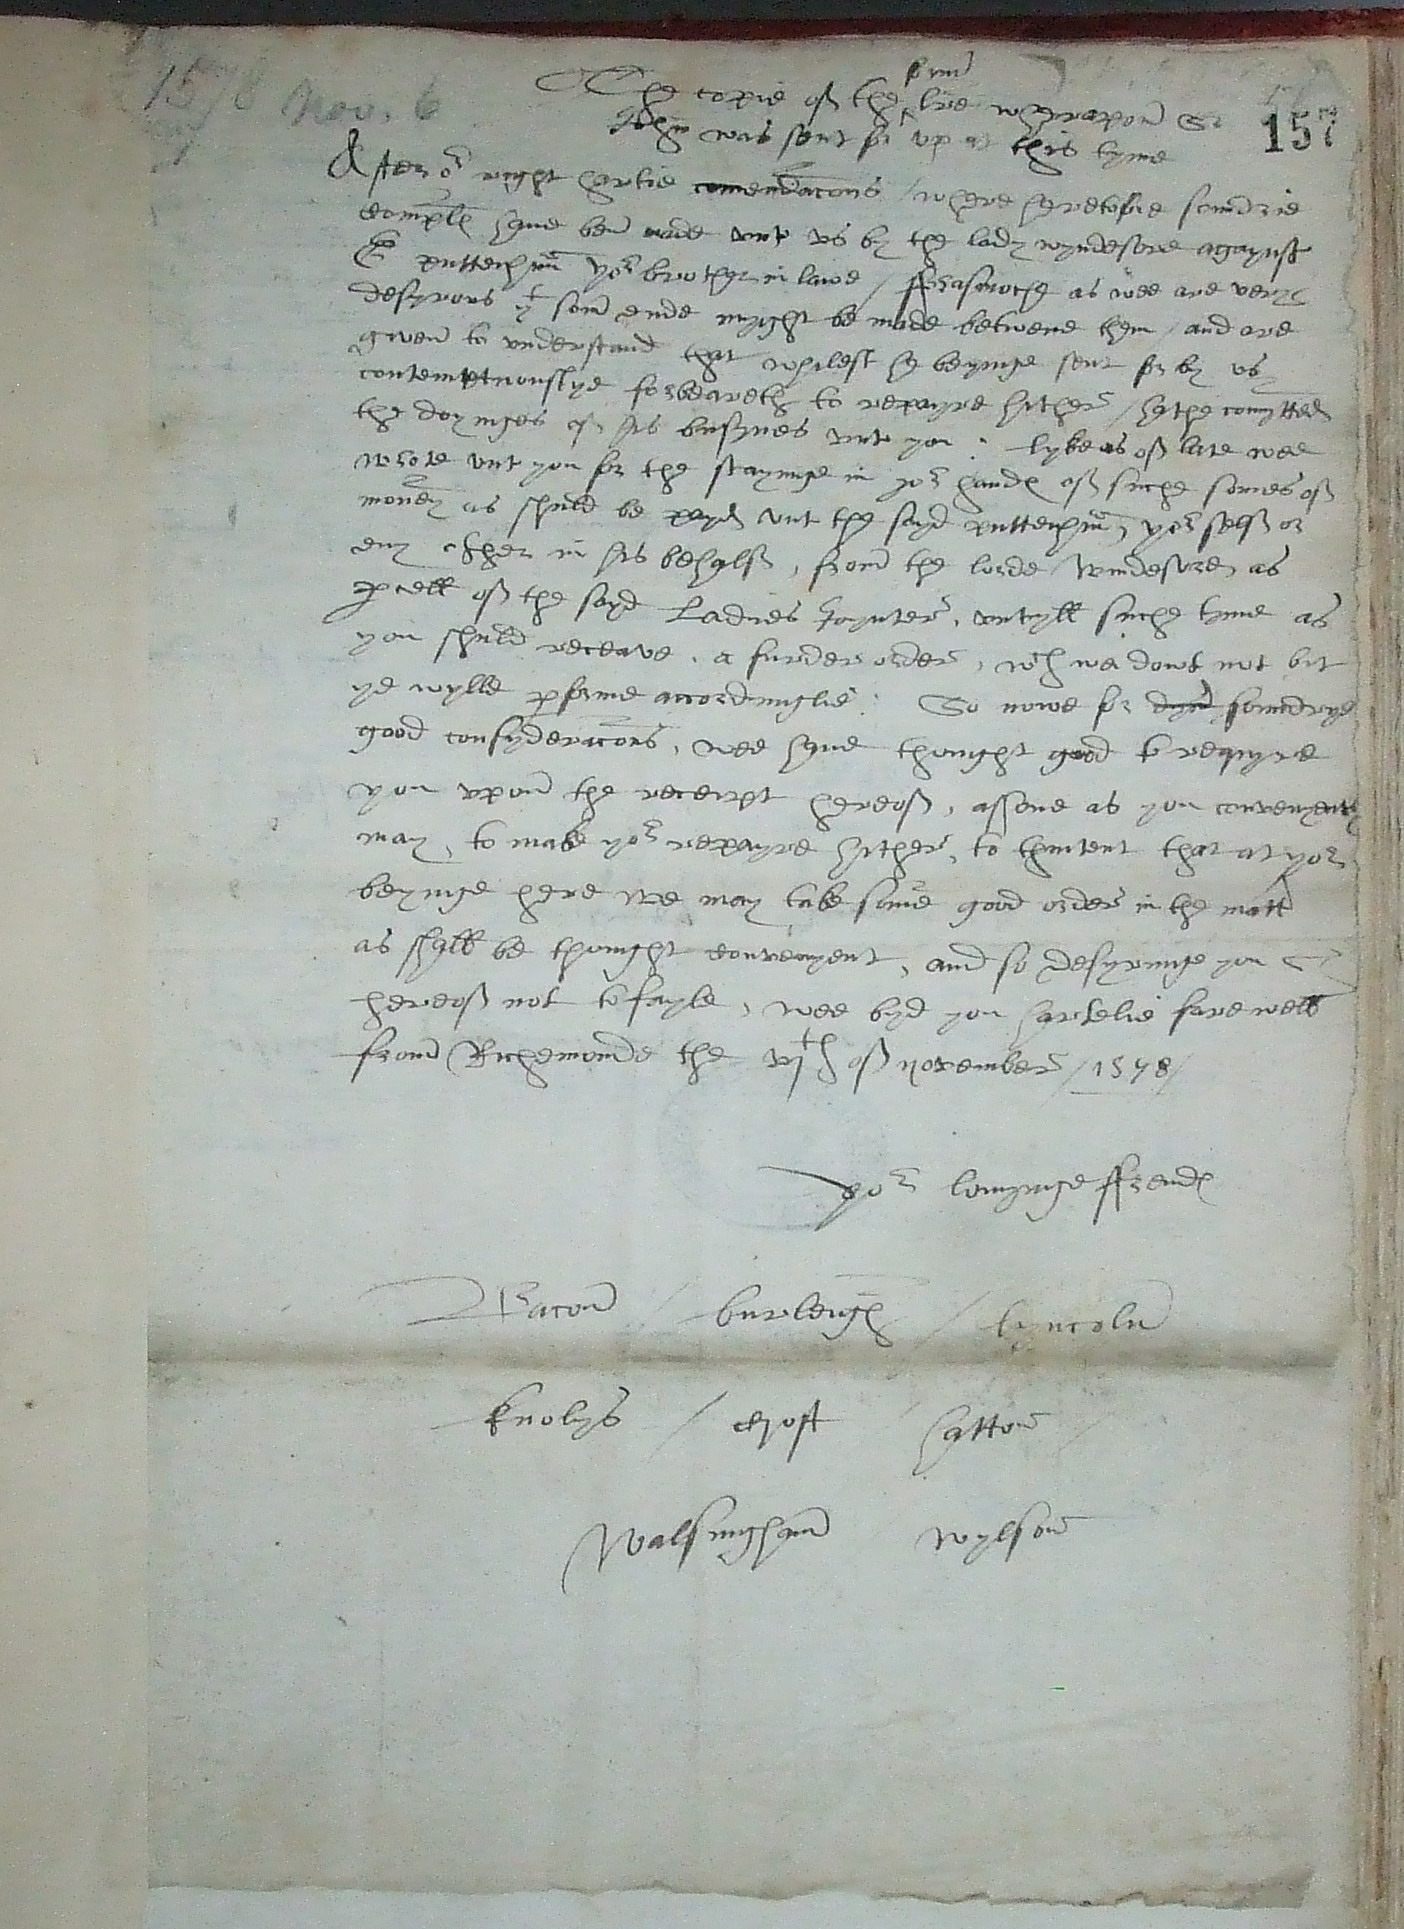 1578 Nov. 6
157
The copie of the lre wherepon Sr
John was sent for up at this tyme
After or right hartie comendacons / where heretofore soundrie
compl haue ben made unto us by the lady wyndesore agaynst
puttenham yor brother in lawe / fforasmoche as wee are verye
desyrous yt som ende myght be made betwene them / and are
given to understand that whilest he beyinge sent for by us
contemptuouslye forbeareth to repayre hither / hathe comytted
the doyinges of his busynes unto you : lyke as of late wee
wrote unto you for the stayinge in yor hand of suche somes of
money as shuld be payd unto the sayd puttenham, yor self or
eny other in his behalf, from the lorde Windesore, as
pcell of the sayd Ladies Joynter, untyll suche tyme as
you shuld receave a furder order, wch we dowt not but
ye wylle pforme accordinglie : So nowe for soundrye
good consyderacons, wee haue thought good to requyre
you upon the receipt hereof, assone as you convenyently
may, to make yor repayre hither, to thintent that at yor
beyinge here we may take some good order in the matt
as shall be thought convenyent, and so desyringe you
hereof not to fayle, wee byd you hartelie farewell
from Richemounde the vjth of november / 1578 /
yor lovyinge ffrend
Bacon / burleigh / lyncoln
knolys / croft hatton /
Walsingham wylson